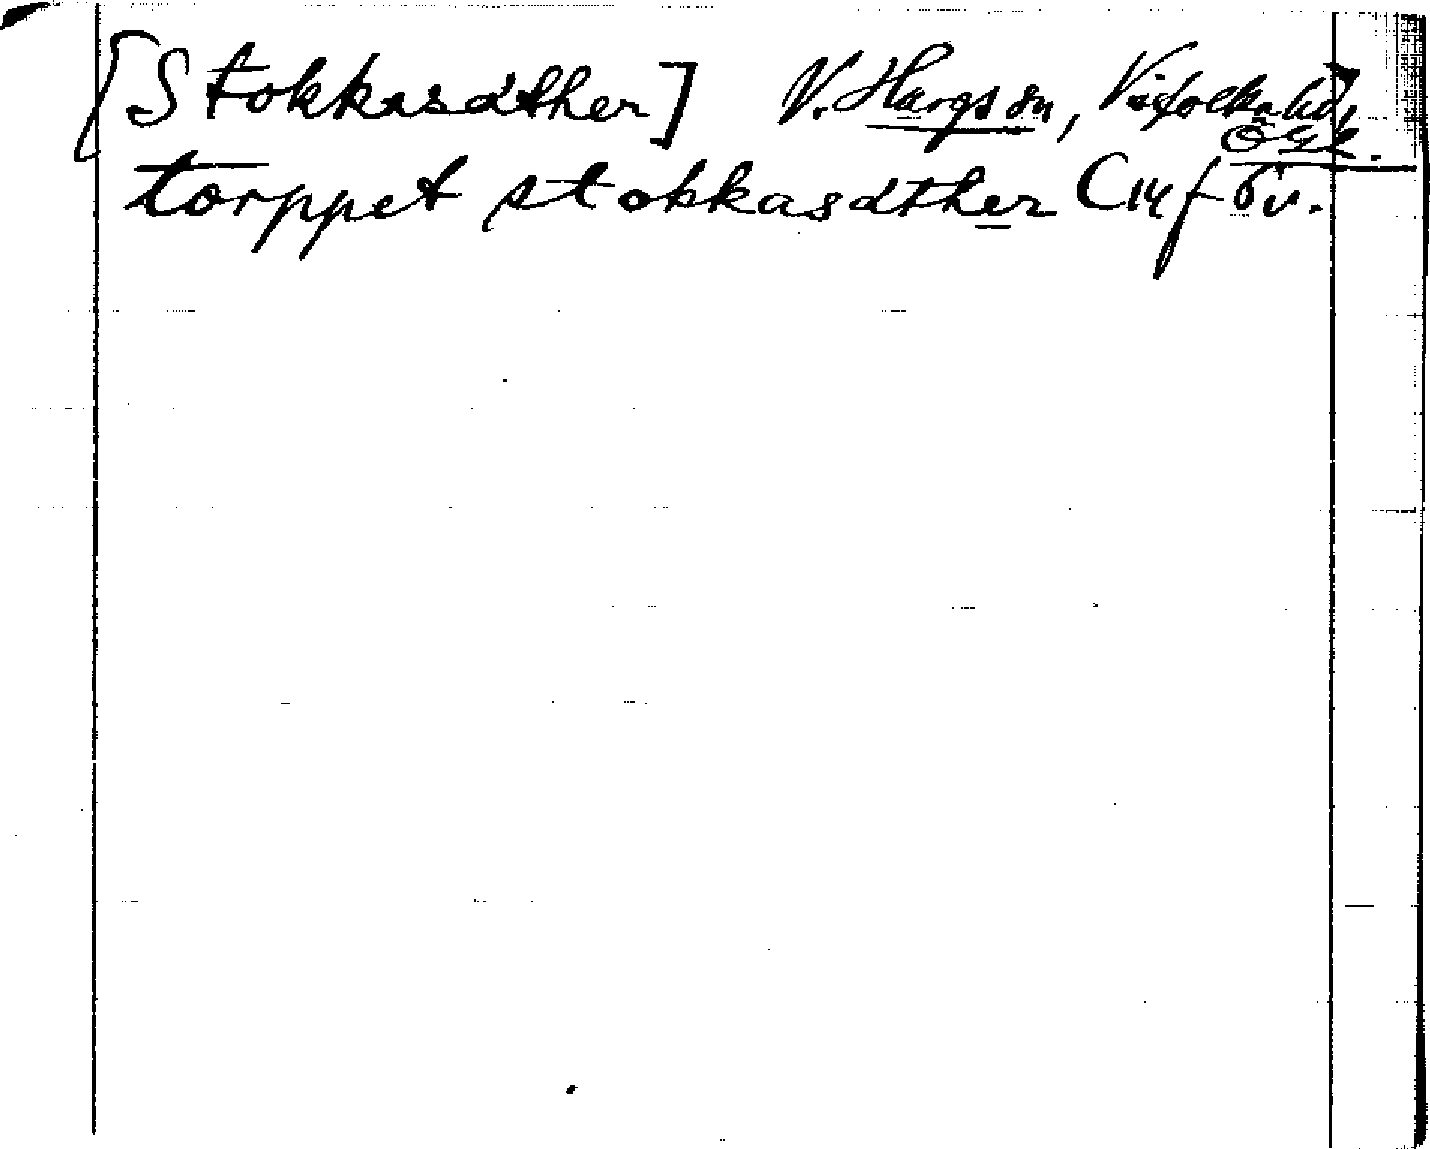 [Stokkasäther] V. Hargs sn, Vifolka hd,
ÖGL.
torppet stokkasäther C 14 f 6 v.